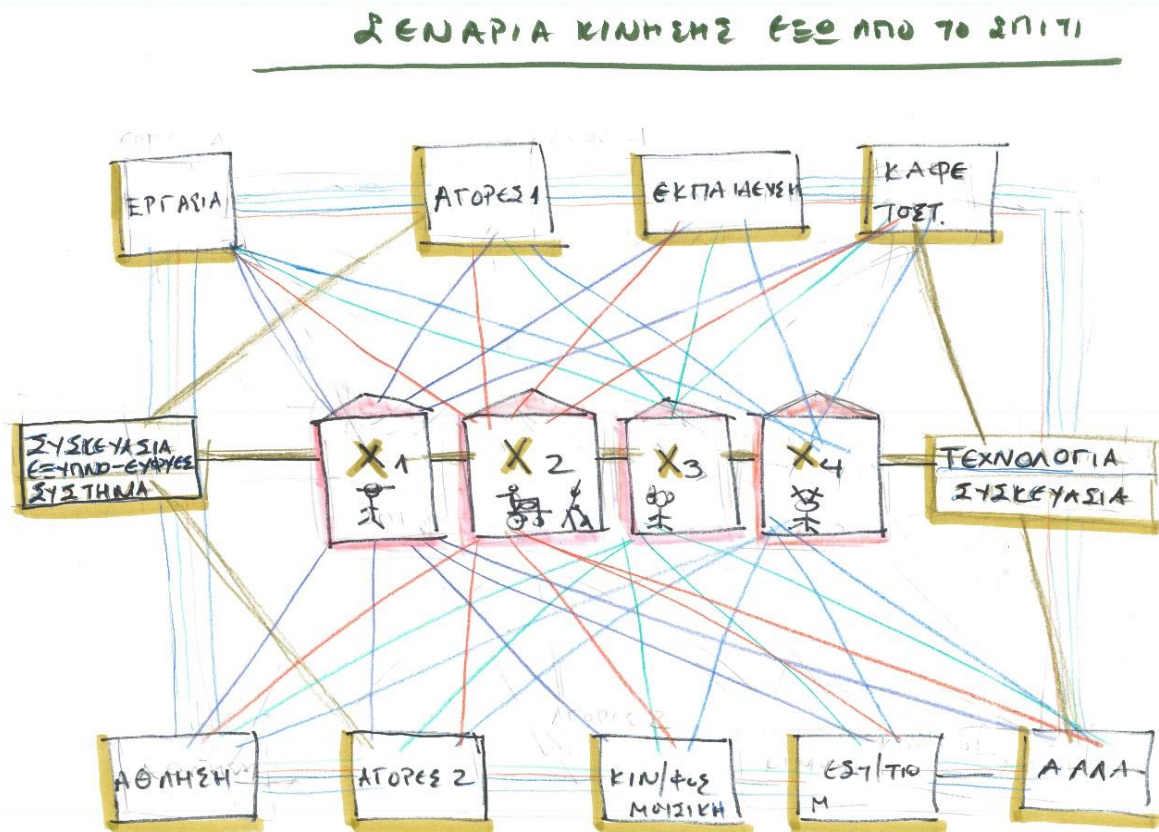 ΣΕΝΑΡΙΑ ΚΙΝΗΣΗΣ ΕΞΩ ΑΠΟ ΤΟ ΣΠΙΤΙ
ΕΡΓΑΣΙΑ
ΑΓΟΡΕΣ 1
ΕΚΠΑΙΔΕΥΣΗ
ΚΑΦΕ
ΤΟΣΤ.
ΣΥΣΚΕΥΑΣΙΑ
ΕΞΥΠΝΟ-ΕΥΦΥΕΣ
ΣΥΣΤΗΜΑ
Χ 1
Χ 2
Χ 3
Χ 4
ΤΕΧΝΟΛΟΓΙΑ
ΣΥΣΚΕΥΑΣΙΑ
ΑΘΛΗΣΗ
ΑΓΟΡΕΣ 2
ΚΙΝ/ΦΟΣ
ΜΟΥΣΙΚΗ
ΕΣΤ/ΤΙΟ
Μ
ΑΛΛΑ